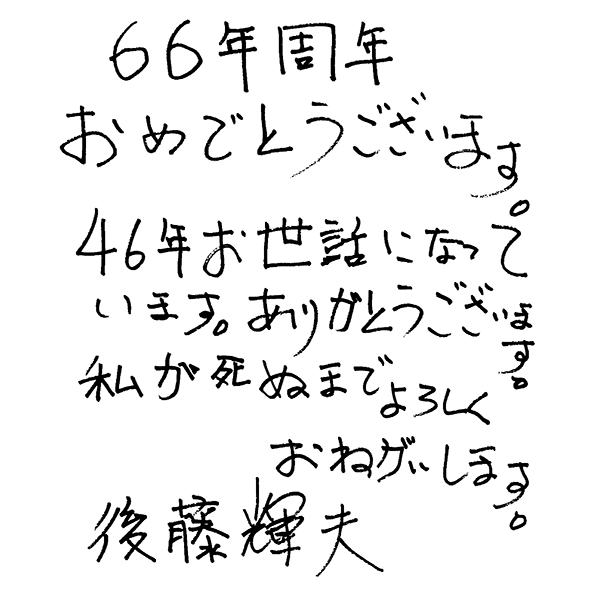 66年周年
おめでとうございます。
46年お世話になって
います。ありがとうございます。
私が死ぬまでよろしく
おねがいします。
後藤輝夫